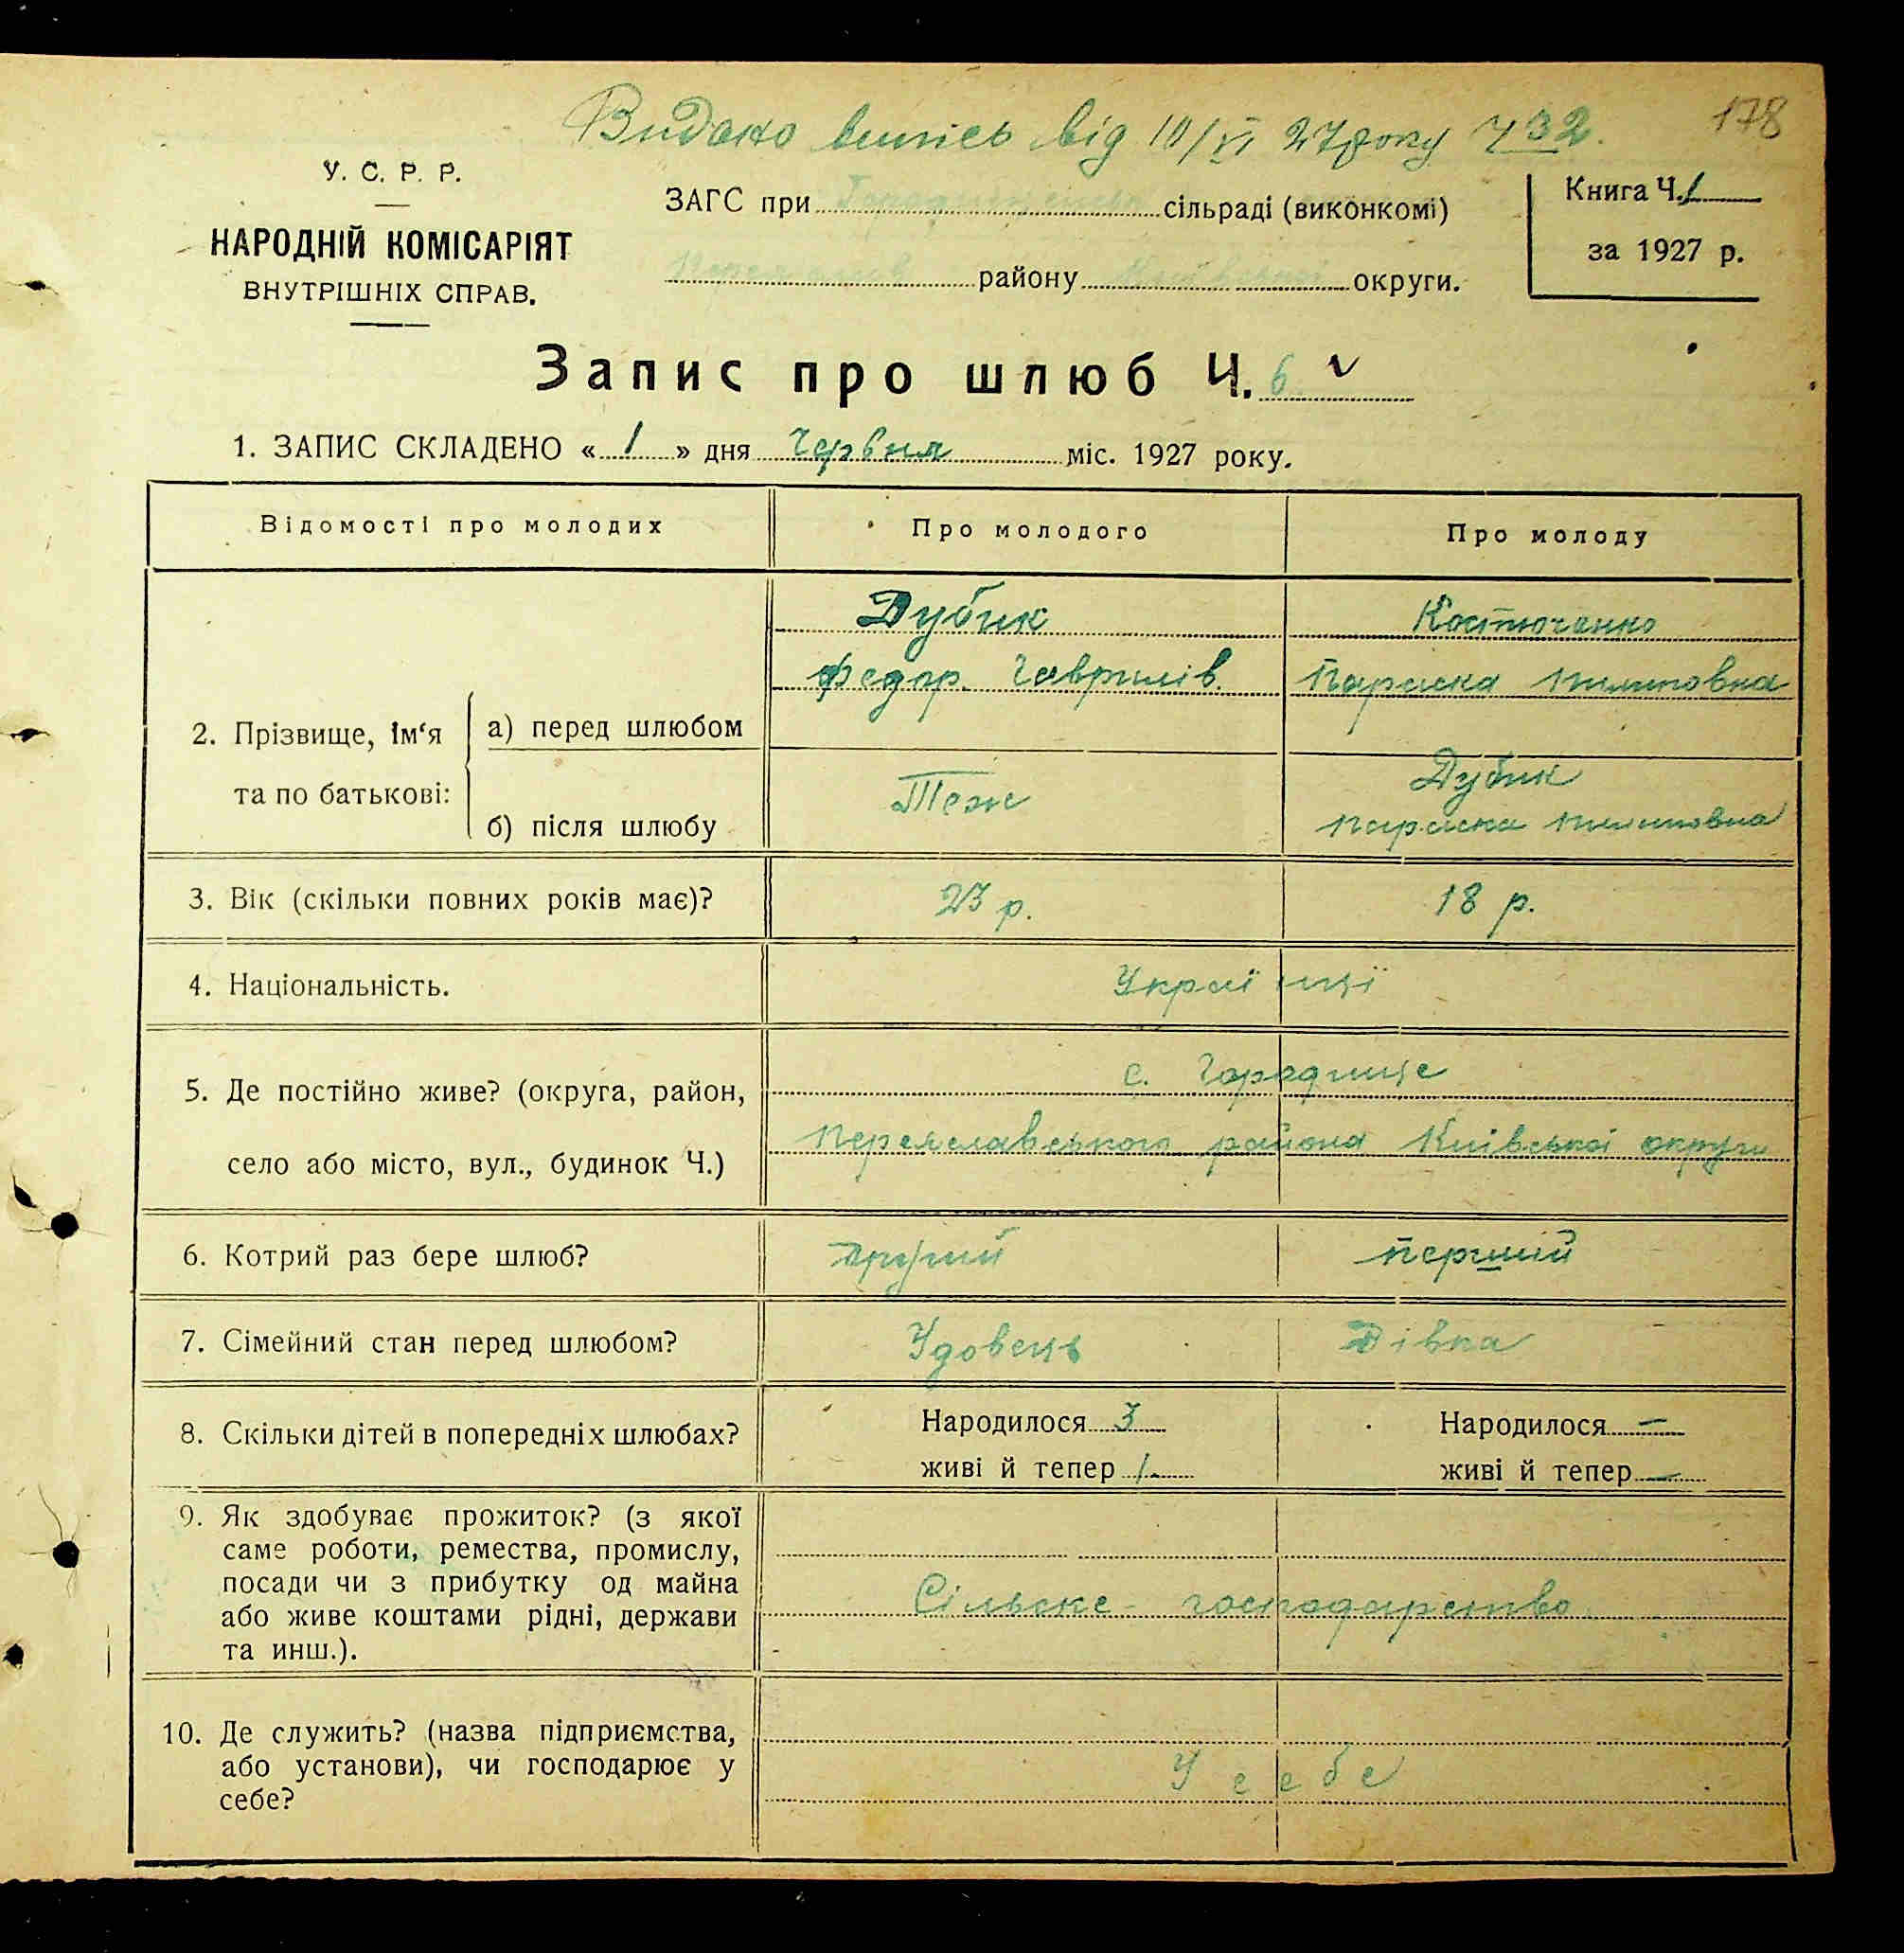 Видано випіс від 10/VI 27 року Ч 32.
178
У. С. Р. Р.
НАРОДНІЙ КОМІСАРІЯТ
ВНУТРІШНІХ СПРАВ.
ЗАГС при сільраді (виконкомі)
району Київської округи.
Книга Ч. 1
за 1927 р.
Запис про шлюб Ч. 6
1. ЗАПИС СКЛАДЕНО « 1 » дня Червня міс. 1927 року.
Відомості про молодих Про молодого Про молоду
2. Прізвище, ім‘я та по батькові:
а) перед шлюбом
Дубик
Федор. Гаврилів.
Костюченко
Параска Пилиповна
б) після шлюбу
Теж
Дубик
Параска Пилиповна
3. Вік (скільки повних років має)? 23 р. 18 р.
4. Національність. Украї нці
5. Де постійно живе? (округа, район,
село або місто, вул., будинок Ч.)
с. Городище
Переяславського района Київської округи
6. Котрий раз бере шлюб? другий перший
7. Сімейний стан перед шлюбом? Удовець Дівка
8. Скільки дітей в попередніх шлюбах?
Народилося 3
живі й тепер 1
Народилося —
живі й тепер —
9. Як здобуває прожиток? (з якої
саме роботи, ремества, промислу,
посади чи з прибутку од майна
або живе коштами рідні, держави
та инш.).
Сільске - господарство
10. Де служить? (назва підприємства,
або установи), чи господарює у
себе?
У себе